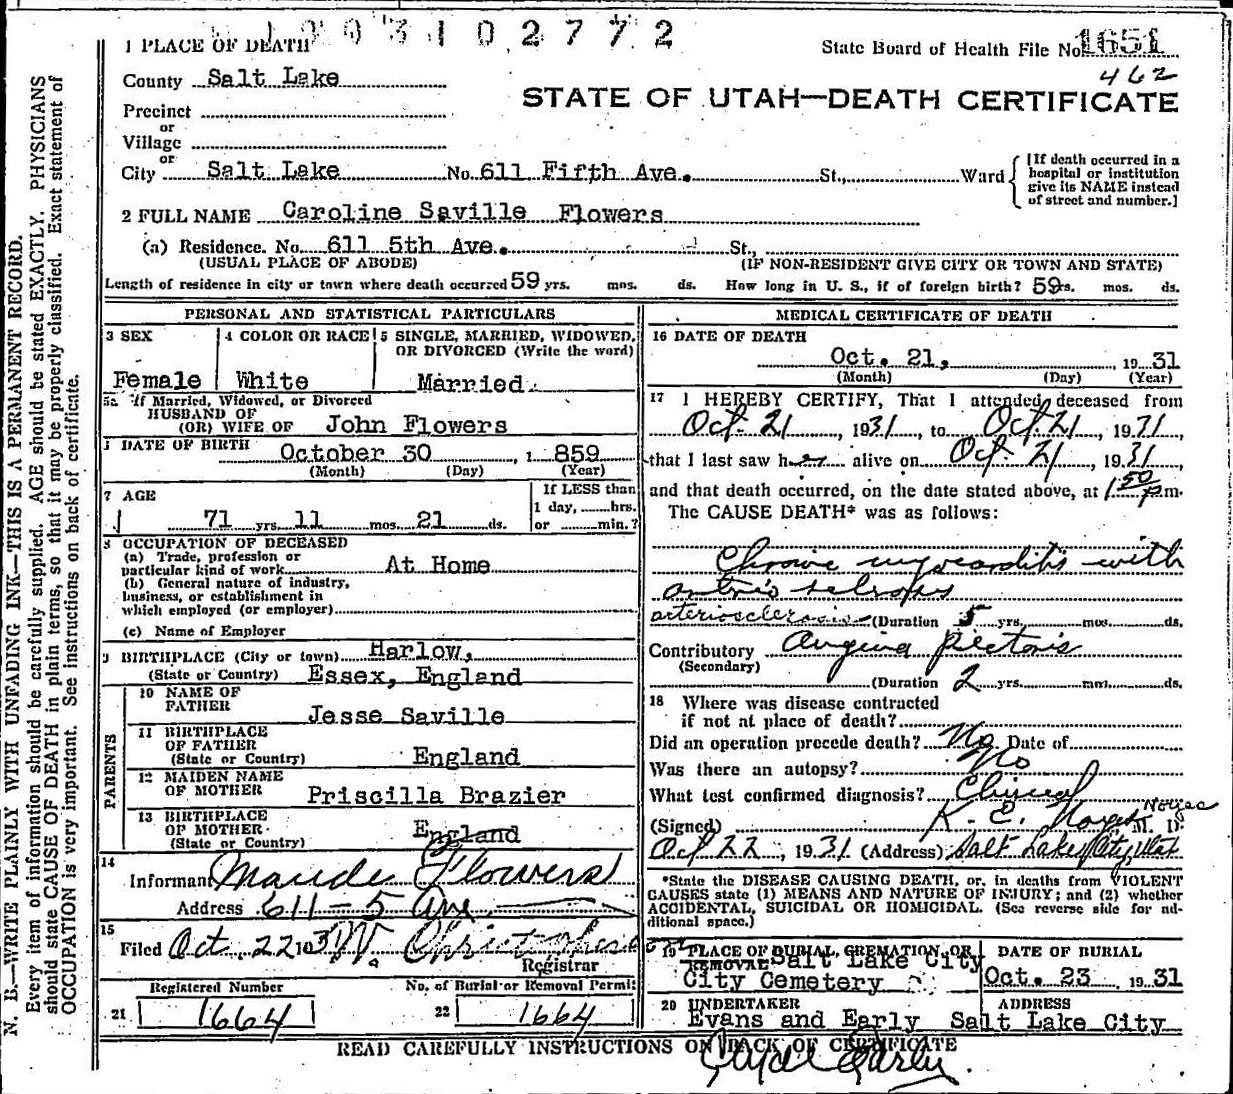 1931 0 2 7 7 2
1 PLACE OF DEATH
State Board of Health File No. 1651
462
County Salt Lake
STATE OF UTAH—DEATH CERTIFICATE
Precinct
or
Village
or
City Salt Lake No. 611 Fifth Ave. St., Ward
[If death occurred in a hospital or institution give its NAME instead of street and number.]
2 FULL NAME Caroline Saville Flowers
(a) Residence. No. 611 5th Ave. St.,
(USUAL PLACE OF ABODE) (IF NON-RESIDENT GIVE CITY OR TOWN AND STATE)
Length of residence in city or town where death occurred 59 yrs. mos. ds. How long in U. S., if of foreign birth? 59rs. mos. ds.
PERSONAL AND STATISTICAL PARTICULARS
3 SEX
Female
4 COLOR OR RACE
White
5 SINGLE, MARRIED, WIDOWED,
OR DIVORCED (Write the word)
Married
5a If Married, Widowed, or Divorced
HUSBAND OF
(OR) WIFE OF John Flowers
DATE OF BIRTH
October 30, 1 859
(Month) (Day) (Year)
7 AGE
71 yrs. 11 mos. 21 ds.
If LESS than
1 day, hrs.
or min.?
8 OCCUPATION OF DECEASED
(a) Trade, profession or
particular kind of work At Home
(b) General nature of industry,
business, or establishment in
which employed (or employer)
(c) Name of Employer
9 BIRTHPLACE (City or town) Harlow,
(State or Country) Essex, England
PARENTS
10 NAME OF
FATHER
Jesse Saville
11 BIRTHPLACE
OF FATHER
(State or Country) England
12 MAIDEN NAME
OF MOTHER Priscilla Brazier
13 BIRTHPLACE
OF MOTHER
(State or Country) England
14
Informant Maude Flowers
Address 611-5 Ave
15
Filed Oct. 22 193
Registrar
Registered Number
21 1664
No. of Burial or Removal Permit
22 1664
MEDICAL CERTIFICATE OF DEATH
16 DATE OF DEATH
Oct. 21, 1931
(Month) (Day) (Year)
17 I HEREBY CERTIFY, That I attended deceased from
Oct 21, 1931, to Oct 21, 1931,
that I last saw her alive on Oct 21, 1931,
and that death occurred, on the date stated above, at 1 50 p.m.
The CAUSE DEATH* was as follows:
Chronic myocarditis with
arteriosclerosis (Duration 5 yrs. mos. ds.
Contributory Angina pectoris
(Secondary)
(Duration 2 yrs. mm. ds.
18 Where was disease contracted
if not at place of death?
Did an operation precede death? No Date of
Was there an autopsy? No
What test confirmed diagnosis? Clinical
Noyes
(Signed) K. E. Noyes M. D.
Oct 22, 1931 (Address) Salt Lake City, Utah
*State the DISEASE CAUSING DEATH, or, in deaths from VIOLENT
CAUSES state (1) MEANS AND NATURE OF INJURY; and (2) whether
ACCIDENTAL, SUICIDAL OR HOMICIDAL. (See reverse side for ad-
ditional space.)
19 PLACE OF BURIAL, CREMATION, OR
REMOVAL Salt Lake City
City Cemetery
DATE OF BURIAL
Oct. 23, 1931
20 UNDERTAKER
Evans and Early
ADDRESS
Salt Lake City
READ CAREFULLY INSTRUCTIONS ON BACK OF CERTIFICATE
N. B.—WRITE PLAINLY WITH UNFADING INK—THIS IS A PERMANENT RECORD.
Every item of information should be carefully supplied. AGE should be stated EXACTLY. PHYSICIANS
should state CAUSE OF DEATH in plain terms, so that it may be properly classified. Exact statement of
OCCUPATION is very important. See instructions on back of certificate.